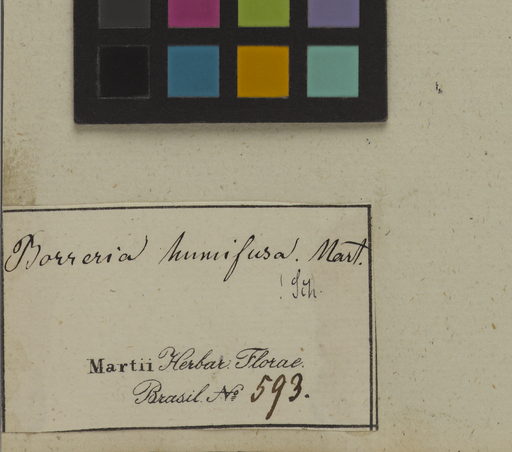 Borreria humifusa. Mart.
! Sch.
Martii Herbar. Florae.
Brasil. No 593.